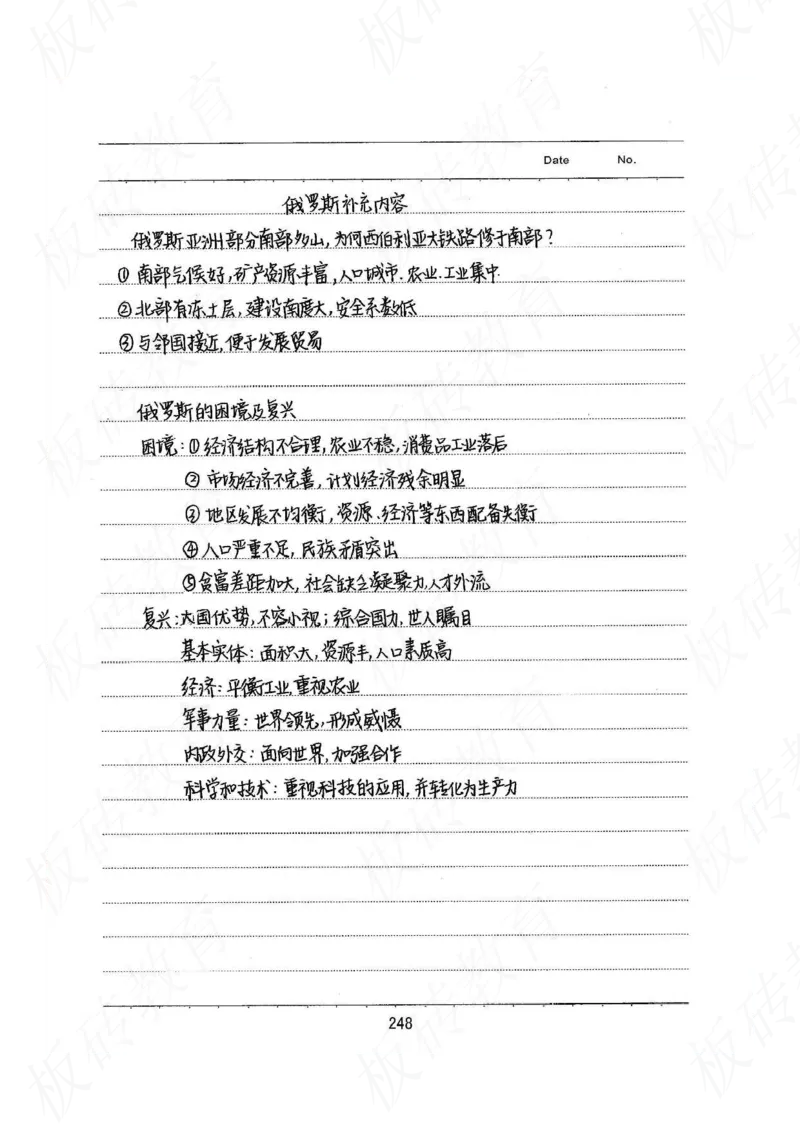 Date No.
俄罗斯补充内容
俄罗斯亚洲部分南部多山,为何西伯利亚大铁路修于南部?
① 南部气候好,矿产资源丰富,人口城市、农业、工业集中
② 北部有冻土层,建设难度大,安全系数低
③ 与邻国接近,便于发展贸易
俄罗斯的困境及复兴
困境:① 经济结构不合理,农业不稳,消费品工业落后
② 市场经济不完善,计划经济残余明显
③ 地区发展不均衡,资源、经济等东西配备失衡
④ 人口严重不足,民族矛盾突出
⑤ 贫富差距加大,社会缺乏凝聚力,人才外流
复兴:大国优势,不容小视;综合国力,世人瞩目
基本实体:面积大,资源丰,人口素质高
经济:平衡工业,重视农业
军事力量:世界领先,形成威慑
内政外交:面向世界,加强合作
科学和技术:重视科技的应用,并转化为生产力
248
板砖教育